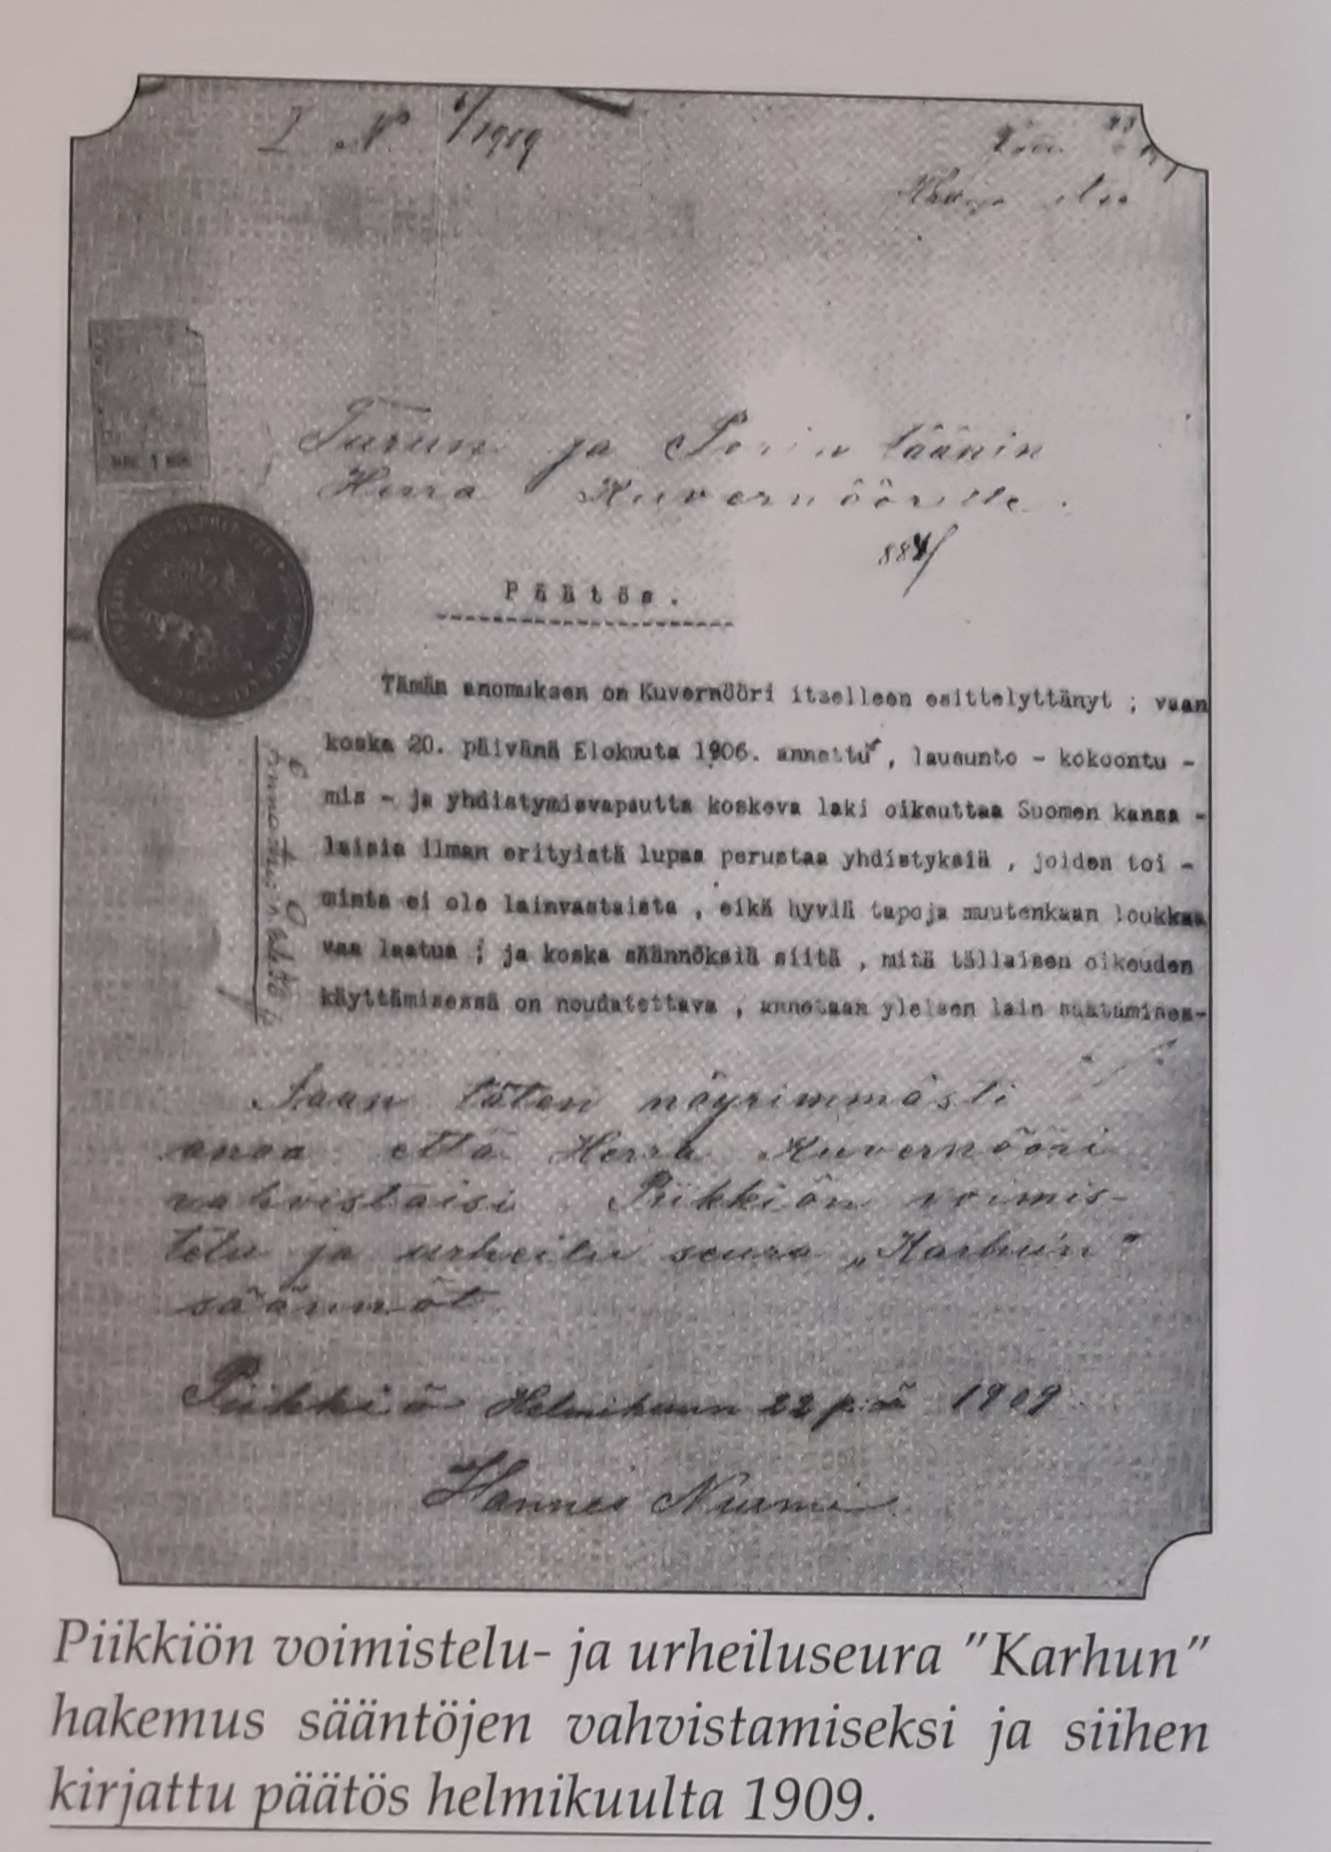 1/1909
Turun ja Porin läänin
Herra Kuvernöörille.
884/
Päätös.
Tämän anomuksen on Kuvernööri itselleen esittelyttänyt ; vaan
koska 20. päivänä Elokuuta 1906. annettu , lausunto - kokoontu -
mis - ja yhdistymisvapautta koskeva laki oikeuttaa Suomen kansa -
laisia ilman erityistä lupaa perustaa yhdistyksiä , joiden toi -
minta ei ole lainvastaista , eikä hyviä tapoja muutenkaan loukkaa
vaa laatua ; ja koska säännöksiä siitä , mitä tällaisen oikeuden
käyttämisessä on noudatettava , annetaan yleisen lain säätämises-
Saan täten nöyrimmästi
anoa että Herra Kuvernööri
vahvistaisi Piikkiön voimis-
telu ja urheilu seura „Karhun"
säännöt
Piikkiö Helmikuun 22 p:nä 1909
Hannes Nurmi
Piikkiön voimistelu- ja urheiluseura ”Karhun”
hakemus sääntöjen vahvistamiseksi ja siihen
kirjattu päätös helmikuulta 1909.